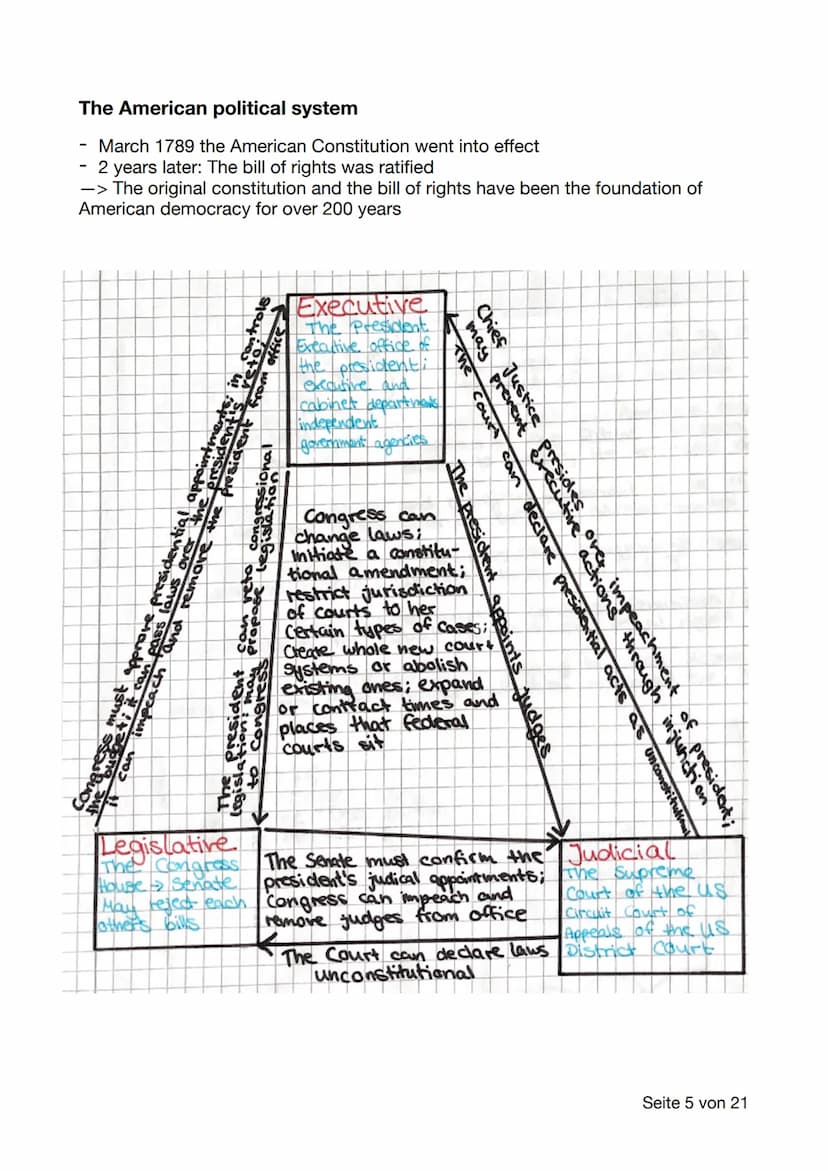 The American political system
- March 1789 the American Constitution went into effect
- 2 years later: The bill of rights was ratified
—> The original constitution and the bill of rights have been the foundation of
American democracy for over 200 years
Executive
The President
Executive office of
the president;
executive and
cabinet departments
independent
government agencies
Congress must approve presidential appointments; in controls
the budget; it can pass laws over the president's veto;
it can impeach and remove the president from office
The President can veto congressional
legislation; may propose legislation
to Congress
Congress can
change laws;
initiate a constitu-
tional amendment;
restrict jurisdiction
of courts to her
certain types of cases;
Create whole new court
systems or abolish
existing ones; expand
or contract times and
places that federal
courts sit
The president appoints judges
The court can declare presidential acts as unconstitutional
Chief Justice presides over impeachment of president;
may prevent executive actions through injunction
Legislative
The Congress
House → Senate
May reject each
other's bills
The Senate must confirm the
president's judical appointments;
Congress can impeach and
remove judges from office
The Court can declare laws
unconstitutional
Judicial
The Supreme
Court of the US
Circuit Court of
Appeals of the US
District Court
Seite 5 von 21